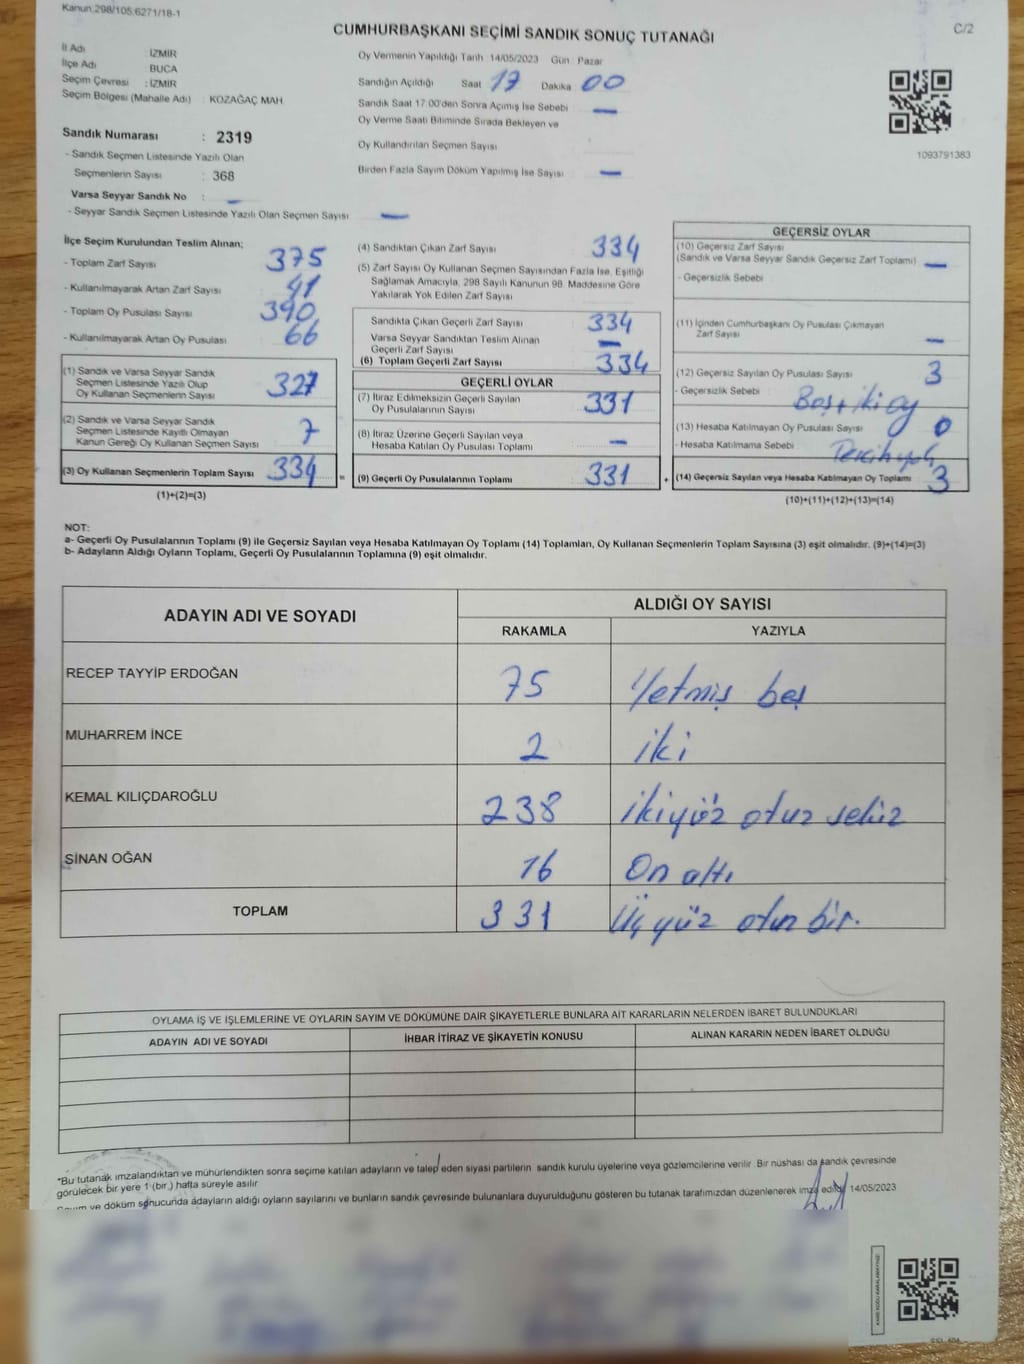 Kanun.298/105.6271/18-1
CUMHURBAŞKANI SEÇİMİ SANDIK SONUÇ TUTANAĞI
C/2
İl Adı : İZMİR
İlçe Adı : BUCA
Seçim Çevresi : İZMİR
Seçim Bölgesi (Mahalle Adı) : KOZAĞAÇ MAH
Sandık Numarası : 2319
- Sandık Seçmen Listesinde Yazılı Olan
Seçmenlerin Sayısı : 368
Varsa Seyyar Sandık No : —
- Seyyar Sandık Seçmen Listesinde Yazılı Olan Seçmen Sayısı —
Oy Vermenin Yapıldığı Tarih 14/05/2023 Gün Pazar
Sandığın Açıldığı Saat 17 Dakika 00
Sandık Saat 17.00'den Sonra Açımış İse Sebebi —
Oy Verme Saati Bitiminde Sırada Bekleyen ve
Oy Kullandırılan Seçmen Sayısı
Birden Fazla Sayım Döküm Yapılmış İse Sayısı —
1093791383
İlçe Seçim Kurulundan Teslim Alınan;
- Toplam Zarf Sayısı 375
- Kullanılmayarak Artan Zarf Sayısı 41
- Toplam Oy Pusulası Sayısı 390
- Kullanılmayarak Artan Oy Pusulası 66
(1) Sandık ve Varsa Seyyar Sandık
Seçmen Listesinde Yazılı Olup
Oy Kullanan Seçmenlerin Sayısı 327
(2) Sandık ve Varsa Seyyar Sandık
Seçmen Listesinde Kayıtlı Olmayan
Kanun Gereği Oy Kullanan Seçmen Sayısı 7
(3) Oy Kullanan Seçmenlerin Toplam Sayısı 334
(1)+(2)=(3)
(4) Sandıktan Çıkan Zarf Sayısı 334
(5) Zarf Sayısı Oy Kullanan Seçmen Sayısından Fazla İse, Eşitliği
Sağlamak Amacıyla, 298 Sayılı Kanunun 98. Maddesine Göre
Yakılarak Yok Edilen Zarf Sayısı
Sandıkta Çıkan Geçerli Zarf Sayısı 334
Varsa Seyyar Sandıktan Teslim Alınan
Geçerli Zarf Sayısı —
(6) Toplam Geçerli Zarf Sayısı 334
GEÇERLİ OYLAR
(7) İtiraz Edilmeksizin Geçerli Sayılan
Oy Pusulalarının Sayısı 331
(8) İtiraz Üzerine Geçerli Sayılan veya
Hesaba Katılan Oy Pusulası Toplamı —
= (9) Geçerli Oy Pusulalarının Toplamı 331 +
GEÇERSİZ OYLAR
(10) Geçersiz Zarf Sayısı
(Sandık ve Varsa Seyyar Sandık Geçersiz Zarf Toplamı) —
- Geçersizlik Sebebi
(11) İçinden Cumhurbaşkanı Oy Pusulası Çıkmayan
Zarf Sayısı —
(12) Geçersiz Sayılan Oy Pusulası Sayısı 3
- Geçersizlik Sebebi Boş + iki oy
(13) Hesaba Katılmayan Oy Pusulası Sayısı 0
- Hesaba Katılmama Sebebi
(14) Geçersiz Sayılan veya Hesaba Katılmayan Oy Toplamı 3
(10)+(11)+(12)+(13)=(14)
NOT:
a- Geçerli Oy Pusulalarının Toplamı (9) ile Geçersiz Sayılan veya Hesaba Katılmayan Oy Toplamı (14) Toplamları, Oy Kullanan Seçmenlerin Toplam Sayısına (3) eşit olmalıdır. (9)+(14)=(3)
b- Adayların Aldığı Oyların Toplamı, Geçerli Oy Pusulalarının Toplamına (9) eşit olmalıdır.
ADAYIN ADI VE SOYADI ALDIĞI OY SAYISI
RAKAMLA YAZIYLA
RECEP TAYYİP ERDOĞAN 75 Yetmiş beş
MUHARREM İNCE 2 iki
KEMAL KILIÇDAROĞLU 238 ikiyüz otuz sekiz
SİNAN OĞAN 16 On altı
TOPLAM 331 Üçyüz otuz bir.
OYLAMA İŞ VE İŞLEMLERİNE VE OYLARIN SAYIM VE DÖKÜMÜNE DAİR ŞİKAYETLERLE BUNLARA AİT KARARLARIN NELERDEN İBARET BULUNDUKLARI
ADAYIN ADI VE SOYADI İHBAR İTİRAZ VE ŞİKAYETİN KONUSU ALINAN KARARIN NEDEN İBARET OLDUĞU
"Bu tutanak imzalandıktan ve mühürlendikten sonra seçime katılan adayların ve talep eden siyasi partilerin sandık kurulu üyelerine veya gözlemcilerine verilir. Bir nüshası da sandık çevresinde
görülecek bir yere 1 (bir.) hafta süreyle asılır.
ve döküm sonucunda adayların aldığı oyların sayılarını ve bunların sandık çevresinde bulunanlara duyurulduğunu gösteren bu tutanak tarafımızdan düzenlenerek imza edildi. 14/05/2023